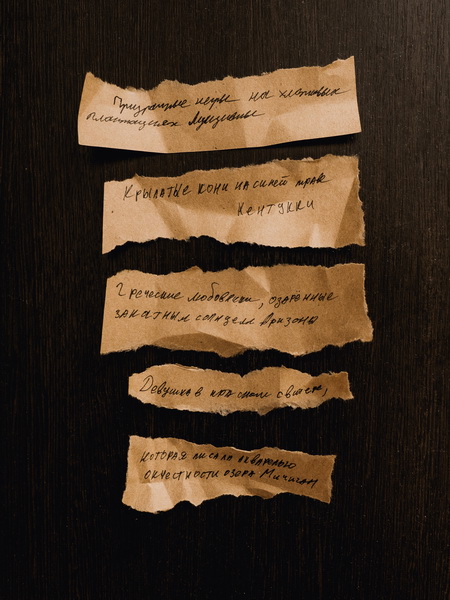 Призрачные негры на хлопковых
плантациях Луизианы
Крылатые кони на синей траве
Кентукки
Греческие любовники, озарённые
закатным солнцем Аризоны
Девушка в красном свитере,
которая писала акварелью
окрестности озера Мичиган